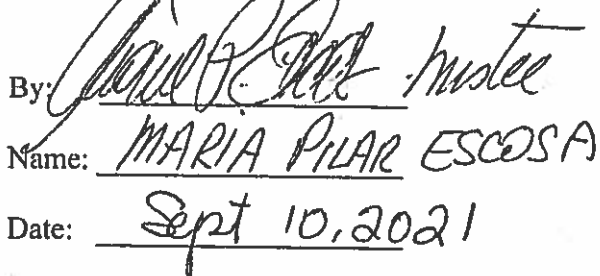 By: Trustee
Name: MARIA PILAR ESCOSA
Date: Sept 10, 2021